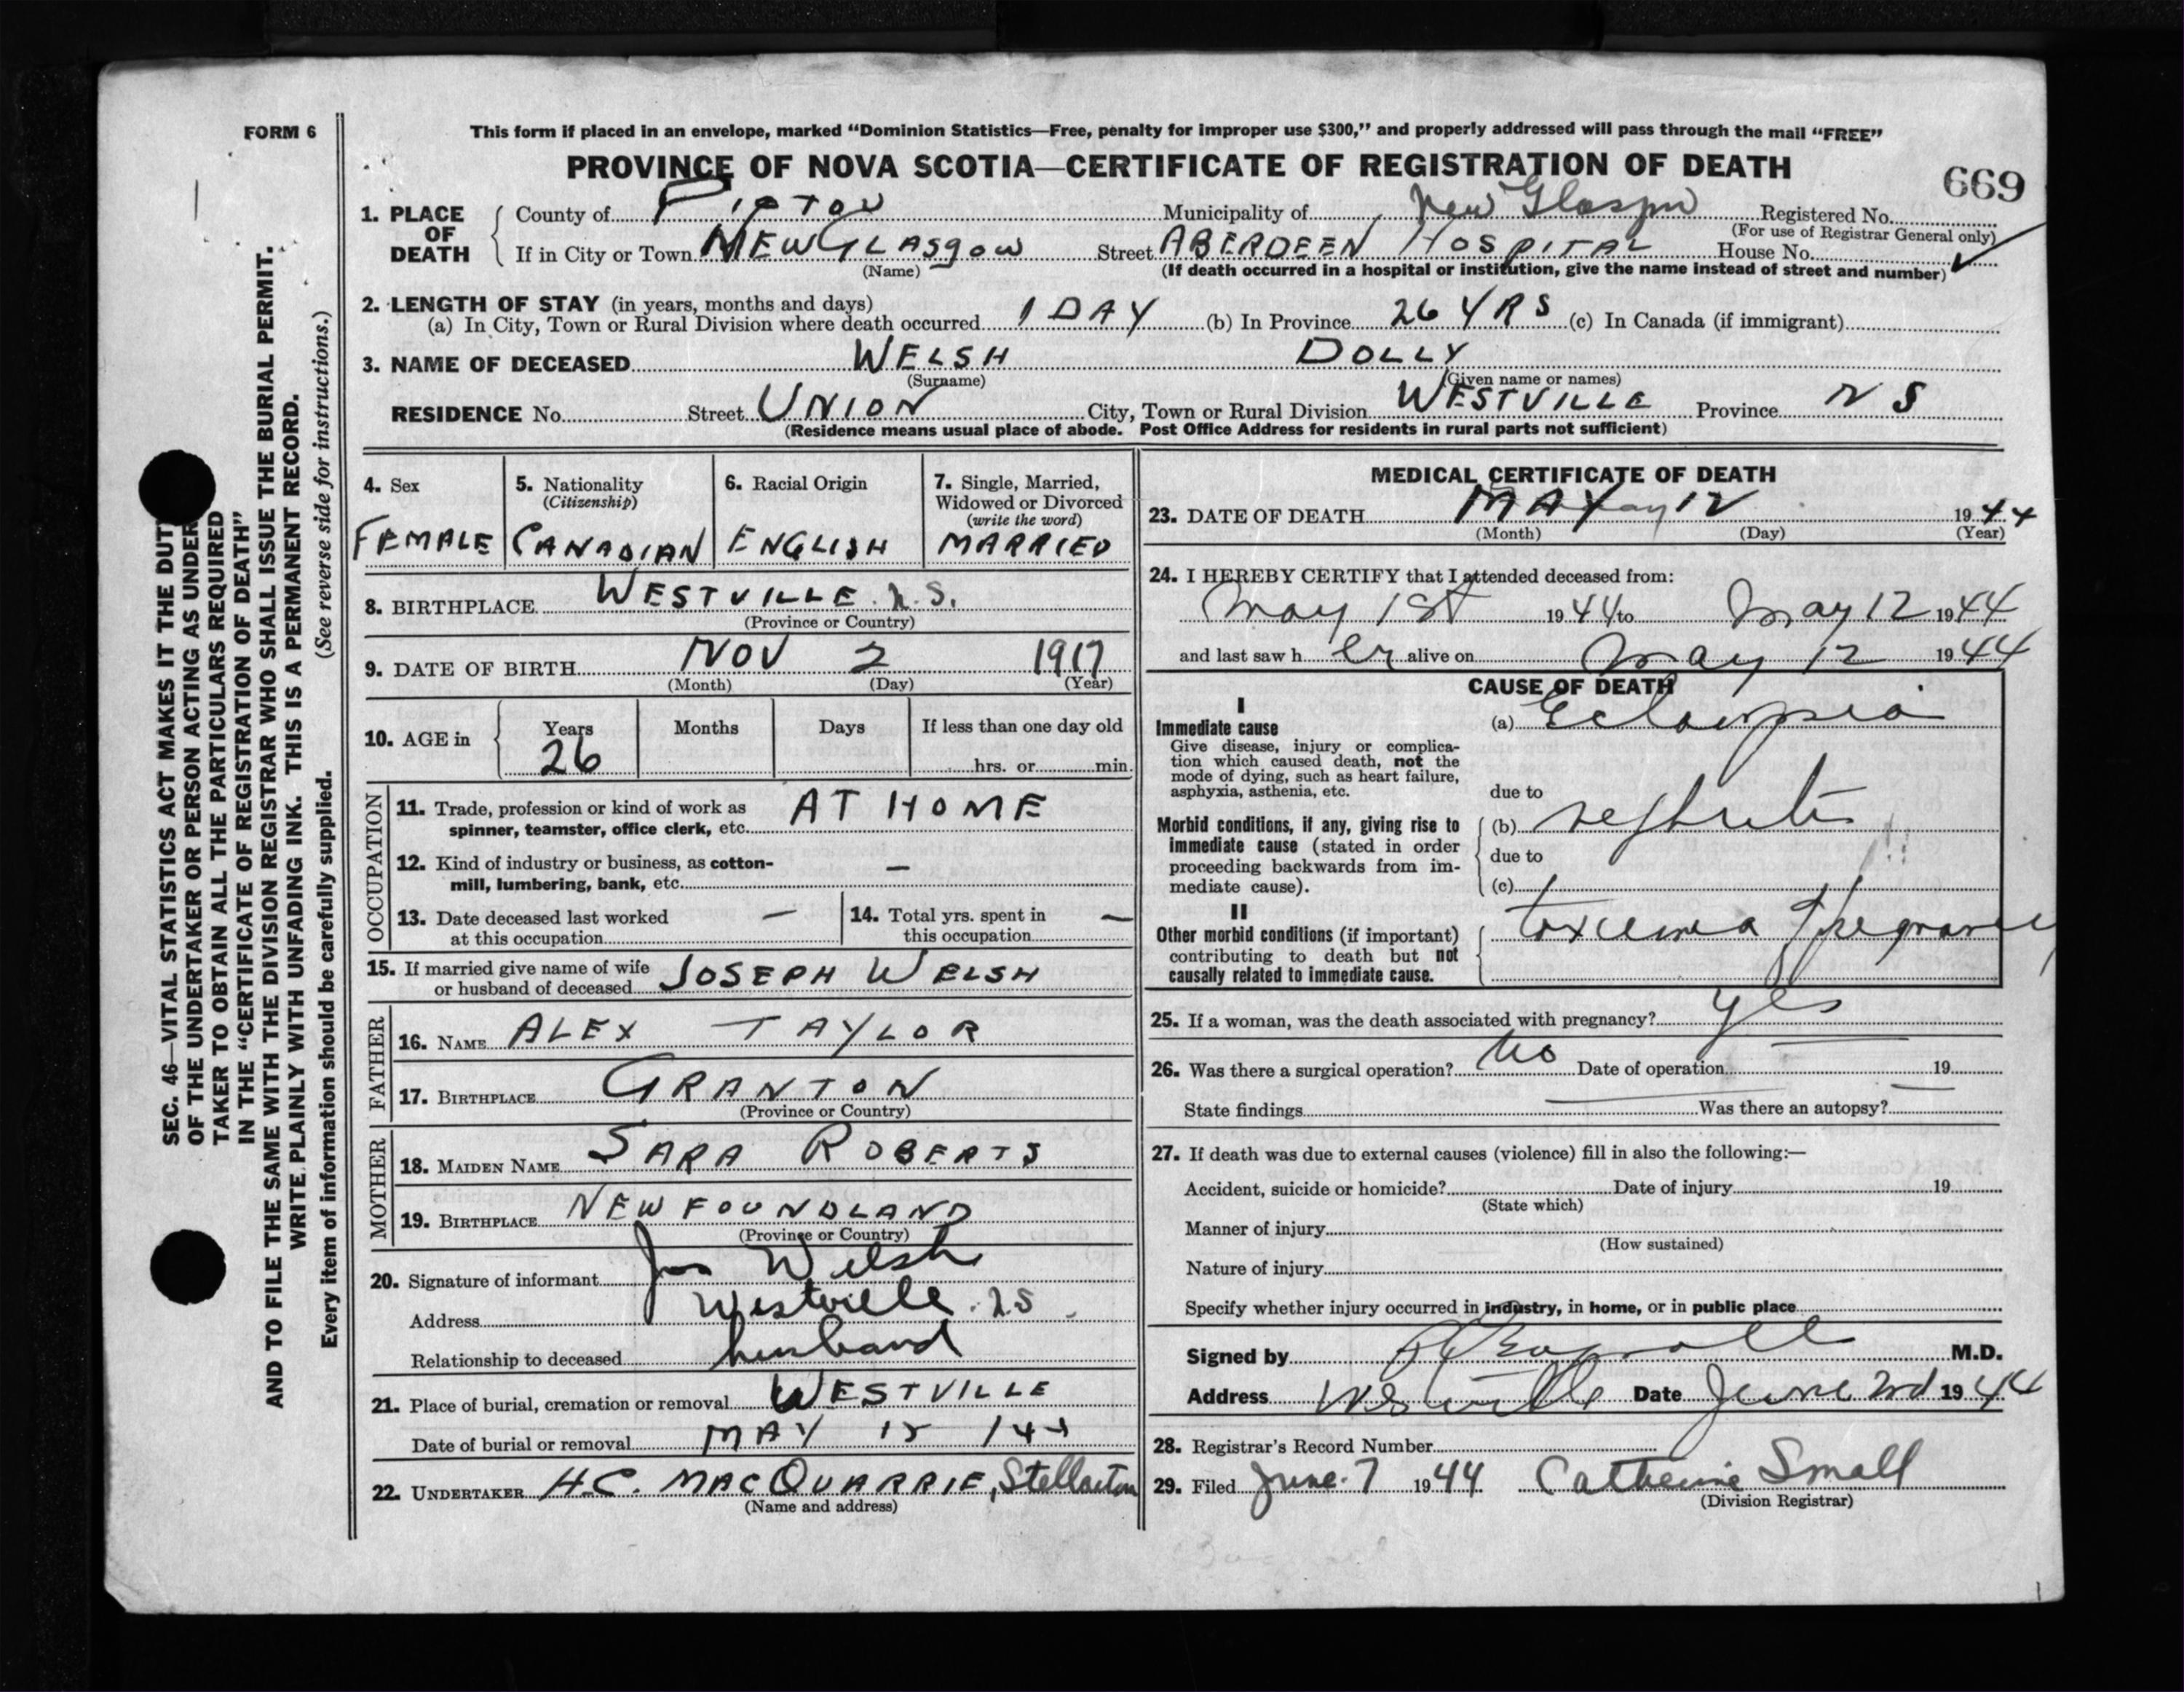 FORM 6
This form if placed in an envelope, marked “Dominion Statistics—Free, penalty for improper use $300,” and properly addressed will pass through the mail “FREE”
PROVINCE OF NOVA SCOTIA—CERTIFICATE OF REGISTRATION OF DEATH
669
1. PLACE OF DEATH
County of PICTOU Municipality of New Glasgow Registered No.
(For use of Registrar General only)
If in City or Town NEW GLASGOW Street ABERDEEN HOSPITAL House No.
(Name) (If death occurred in a hospital or institution, give the name instead of street and number)
2. LENGTH OF STAY (in years, months and days)
(a) In City, Town or Rural Division where death occurred 1 DAY (b) In Province 26 YRS (c) In Canada (if immigrant)
3. NAME OF DECEASED WELSH DOLLY
(Surname) (Given name or names)
RESIDENCE No. Street UNION City, Town or Rural Division WESTVILLE Province N S
(Residence means usual place of abode. Post Office Address for residents in rural parts not sufficient)
4. Sex
FEMALE
5. Nationality
(Citizenship)
CANADIAN
6. Racial Origin
ENGLISH
7. Single, Married,
Widowed or Divorced
(write the word)
MARRIED
8. BIRTHPLACE WESTVILLE N.S.
(Province or Country)
9. DATE OF BIRTH NOV 2 1917
(Month) (Day) (Year)
10. AGE in
Years Months Days If less than one day old
26 hrs. or min.
OCCUPATION
11. Trade, profession or kind of work as
spinner, teamster, office clerk, etc. AT HOME
12. Kind of industry or business, as cotton-
mill, lumbering, bank, etc. —
13. Date deceased last worked
at this occupation —
14. Total yrs. spent in
this occupation —
15. If married give name of wife
or husband of deceased JOSEPH WELSH
FATHER
16. NAME ALEX TAYLOR
17. BIRTHPLACE GRANTON
(Province or Country)
MOTHER
18. MAIDEN NAME SARA ROBERTS
19. BIRTHPLACE NEWFOUNDLAND
(Province or Country)
20. Signature of informant Jos Welsh
Address Westville. N.S.
Relationship to deceased husband
21. Place of burial, cremation or removal WESTVILLE
Date of burial or removal MAY
22. UNDERTAKER H.C. MACQUARRIE, Stellarton
(Name and address)
MEDICAL CERTIFICATE OF DEATH
23. DATE OF DEATH MAY 12 1944
(Month) (Day) (Year)
24. I HEREBY CERTIFY that I attended deceased from:
May 1st 1944 to May 12 1944
and last saw her alive on May 12 1944
CAUSE OF DEATH
I
Immediate cause
Give disease, injury or complica-
tion which caused death, not the
mode of dying, such as heart failure,
asphyxia, asthenia, etc.
(a) Eclampsia
due to
Morbid conditions, if any, giving rise to
immediate cause (stated in order
proceeding backwards from im-
mediate cause).
(b) nephritis
due to
(c)
II
Other morbid conditions (if important)
contributing to death but not
causally related to immediate cause.
toxemia of pregnancy
25. If a woman, was the death associated with pregnancy? yes
26. Was there a surgical operation? No Date of operation 19
State findings Was there an autopsy?
27. If death was due to external causes (violence) fill in also the following:—
Accident, suicide or homicide? Date of injury 19
(State which)
Manner of injury
(How sustained)
Nature of injury
Specify whether injury occurred in industry, in home, or in public place
Signed by M.D.
Address Westville Date June 2nd 1944
28. Registrar's Record Number
29. Filed June 7 1944 Catherine Small
(Division Registrar)
SEC. 46—VITAL STATISTICS ACT MAKES IT THE DUTY
OF THE UNDERTAKER OR PERSON ACTING AS UNDER
TAKER TO OBTAIN ALL THE PARTICULARS REQUIRED
IN THE “CERTIFICATE OF REGISTRATION OF DEATH”
AND TO FILE THE SAME WITH THE DIVISION REGISTRAR WHO SHALL ISSUE THE BURIAL PERMIT.
WRITE PLAINLY WITH UNFADING INK. THIS IS A PERMANENT RECORD.
Every item of information should be carefully supplied. (See reverse side for instructions.)